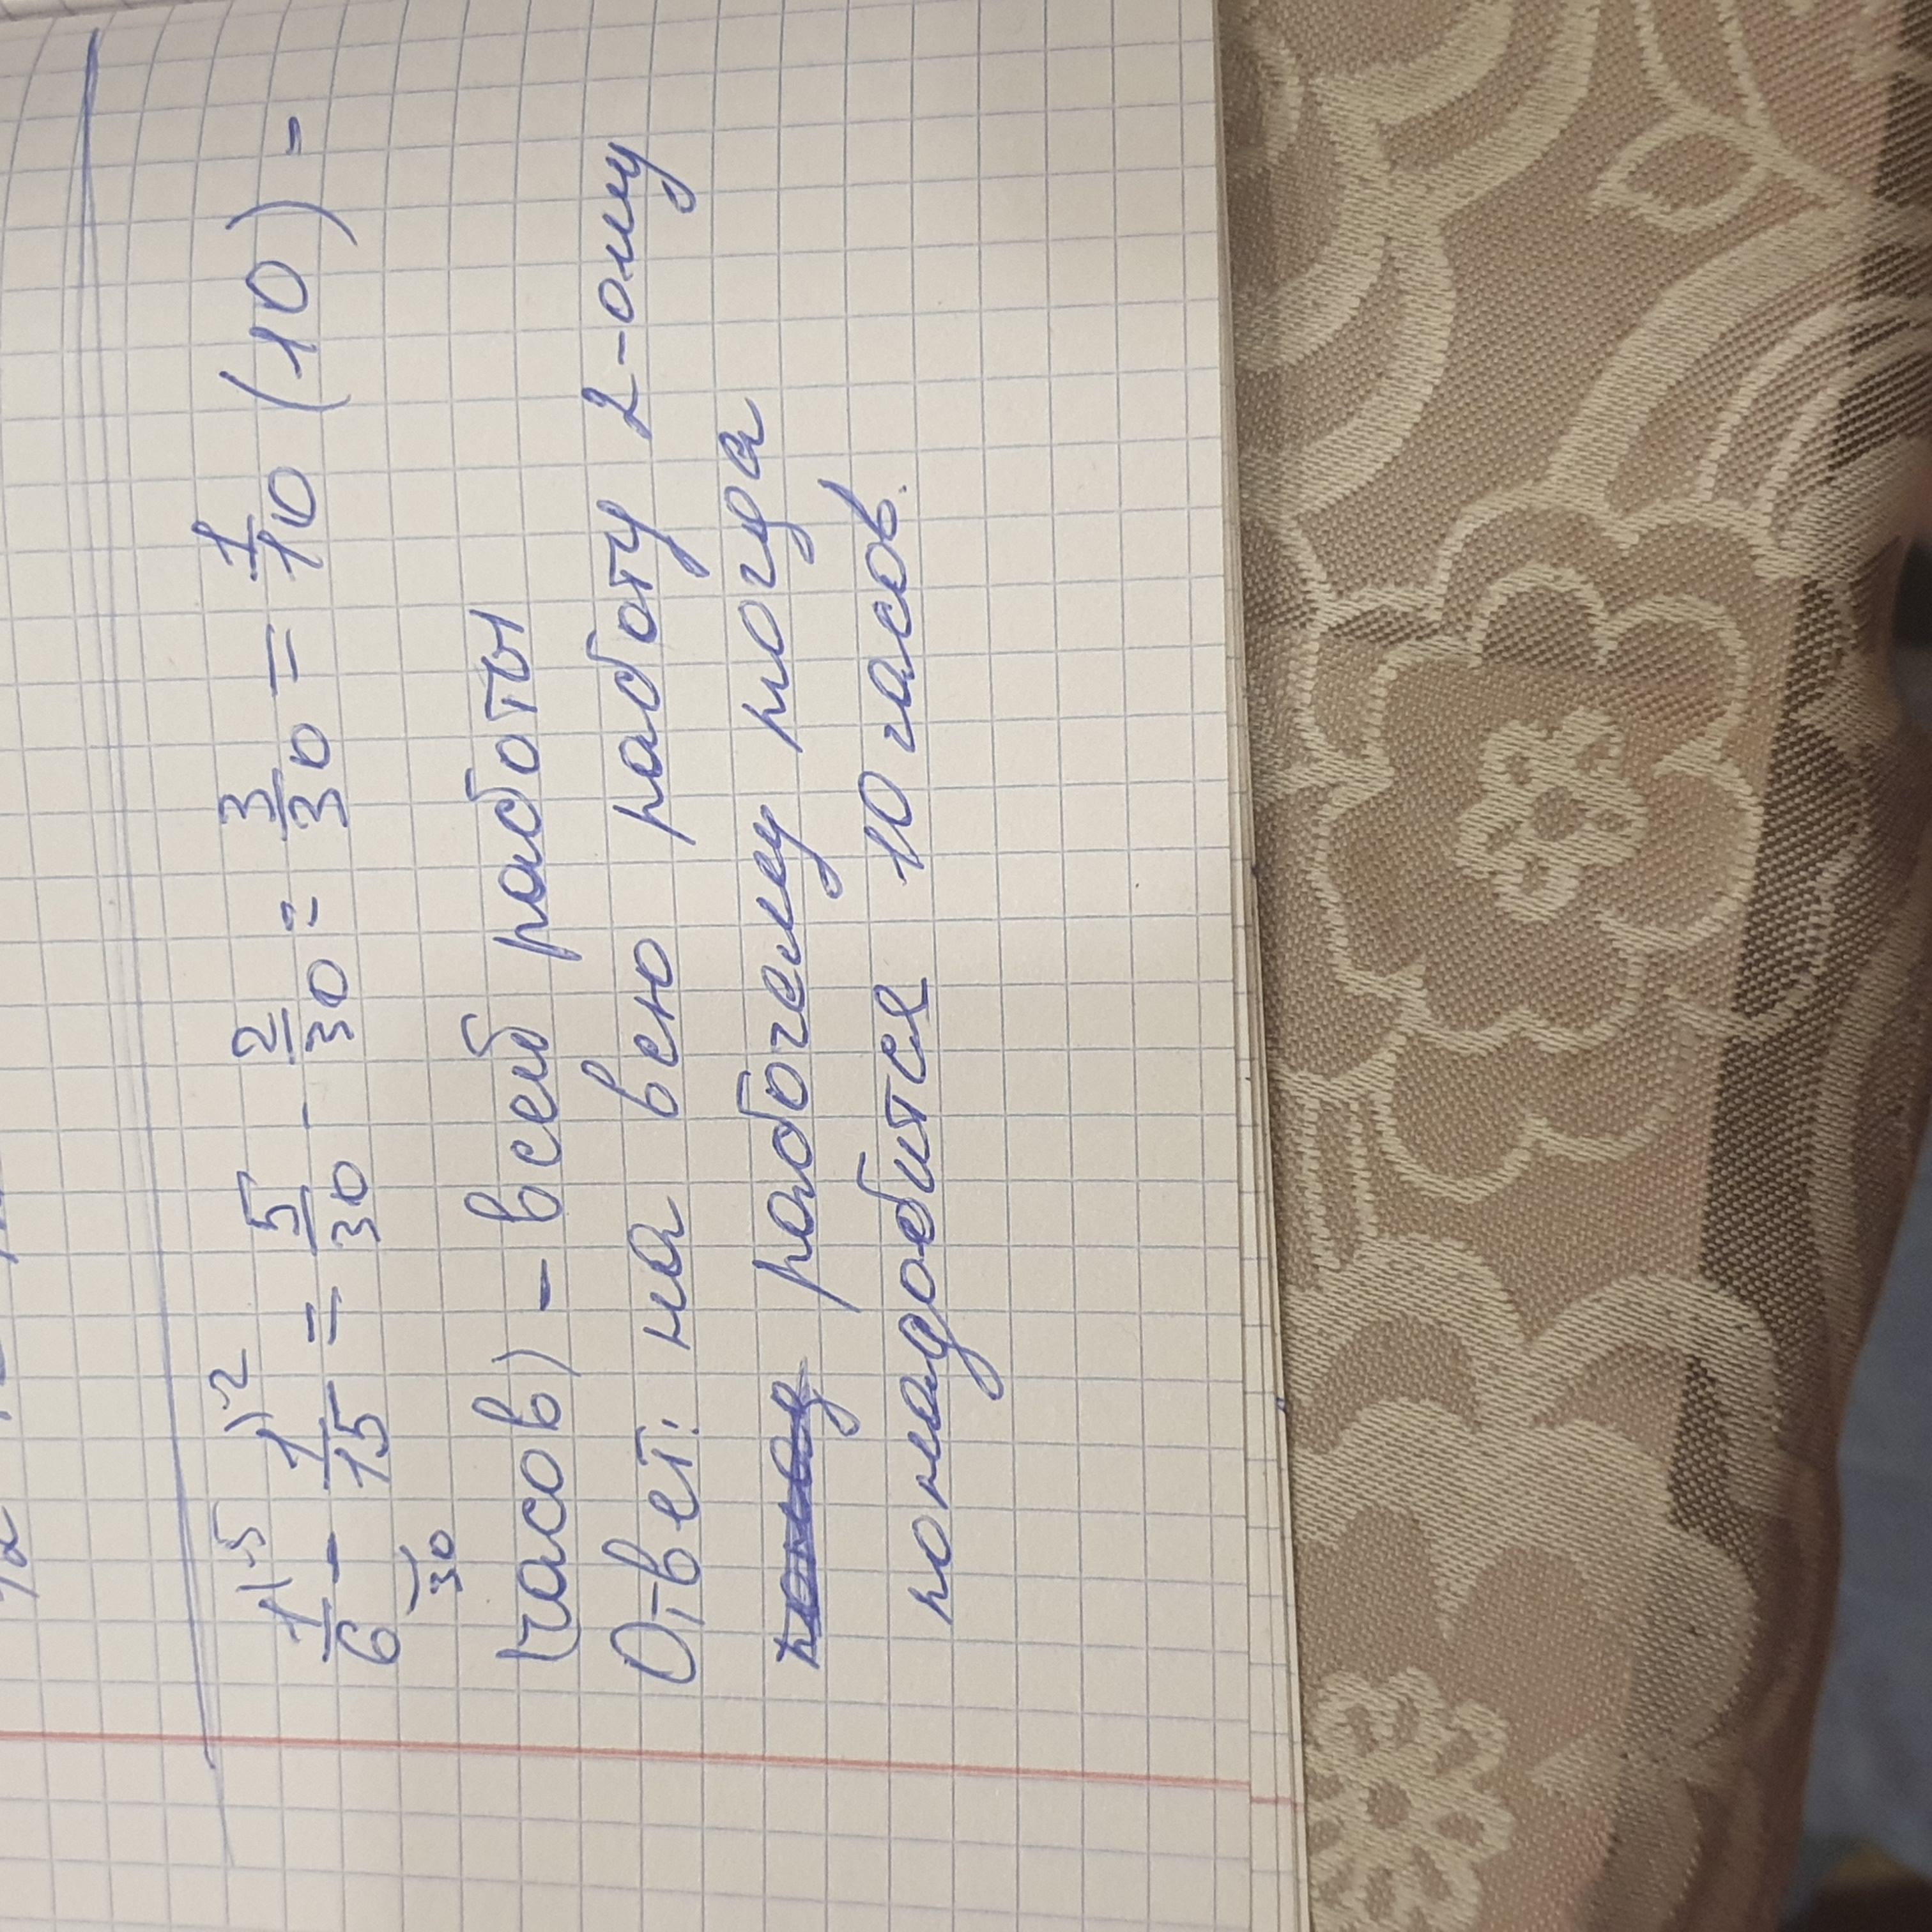 1/6 - 1/15 = 5/30 - 2/30 = 3/30 = 1/10 (10) -
часов) - всей работы
Ответ: на всю работу 2-ому
рабочему тогда
понадобится 10 часов.